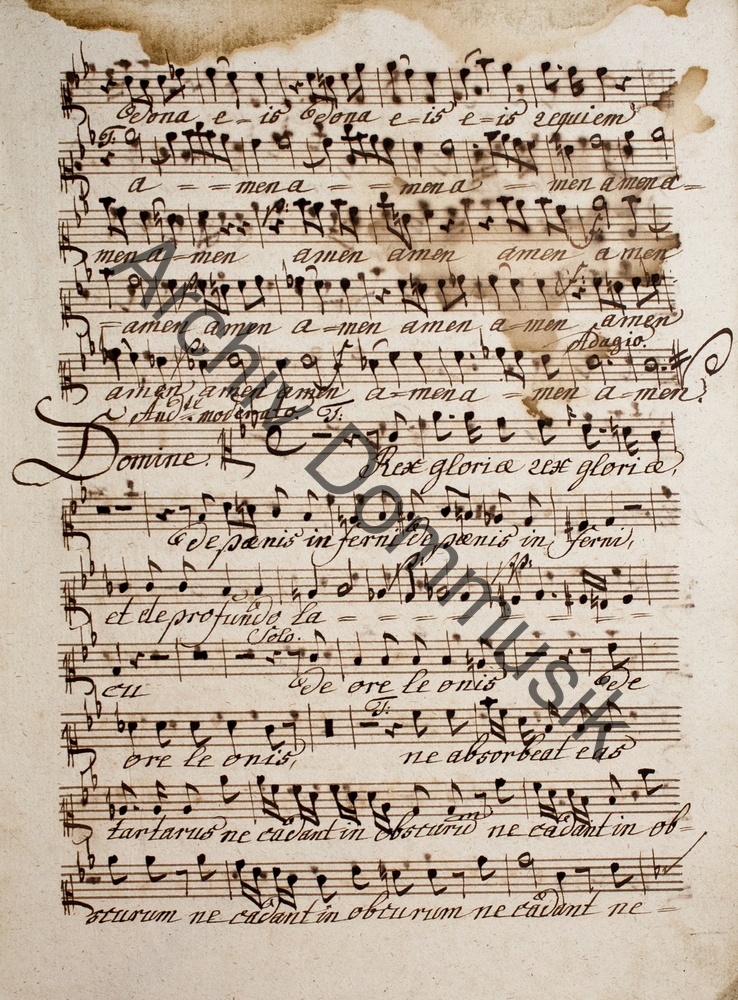 dona e-is dona e-is e-is requiem
T:
a - - men a - - men a - men amen a-
men a-men amen amen amen amen
-amen amen a-men amen a-men amen
Adagio.
amen amen amen a-men a - men a-men.
And:te moderato. T:
Domine. Rex gloriæ rex gloriæ,
de pœnis in ferni de pœnis in ferni,
pp:
et de profundo la - - - - - - - -
Solo.
cu de ore le onis de
T:
ore le onis, ne absorbeat eas
tartarus ne cadant in obscurum ne cadant in ob-
scurum ne cadant in obcurum ne cadant ne-
Archiv Dommusik